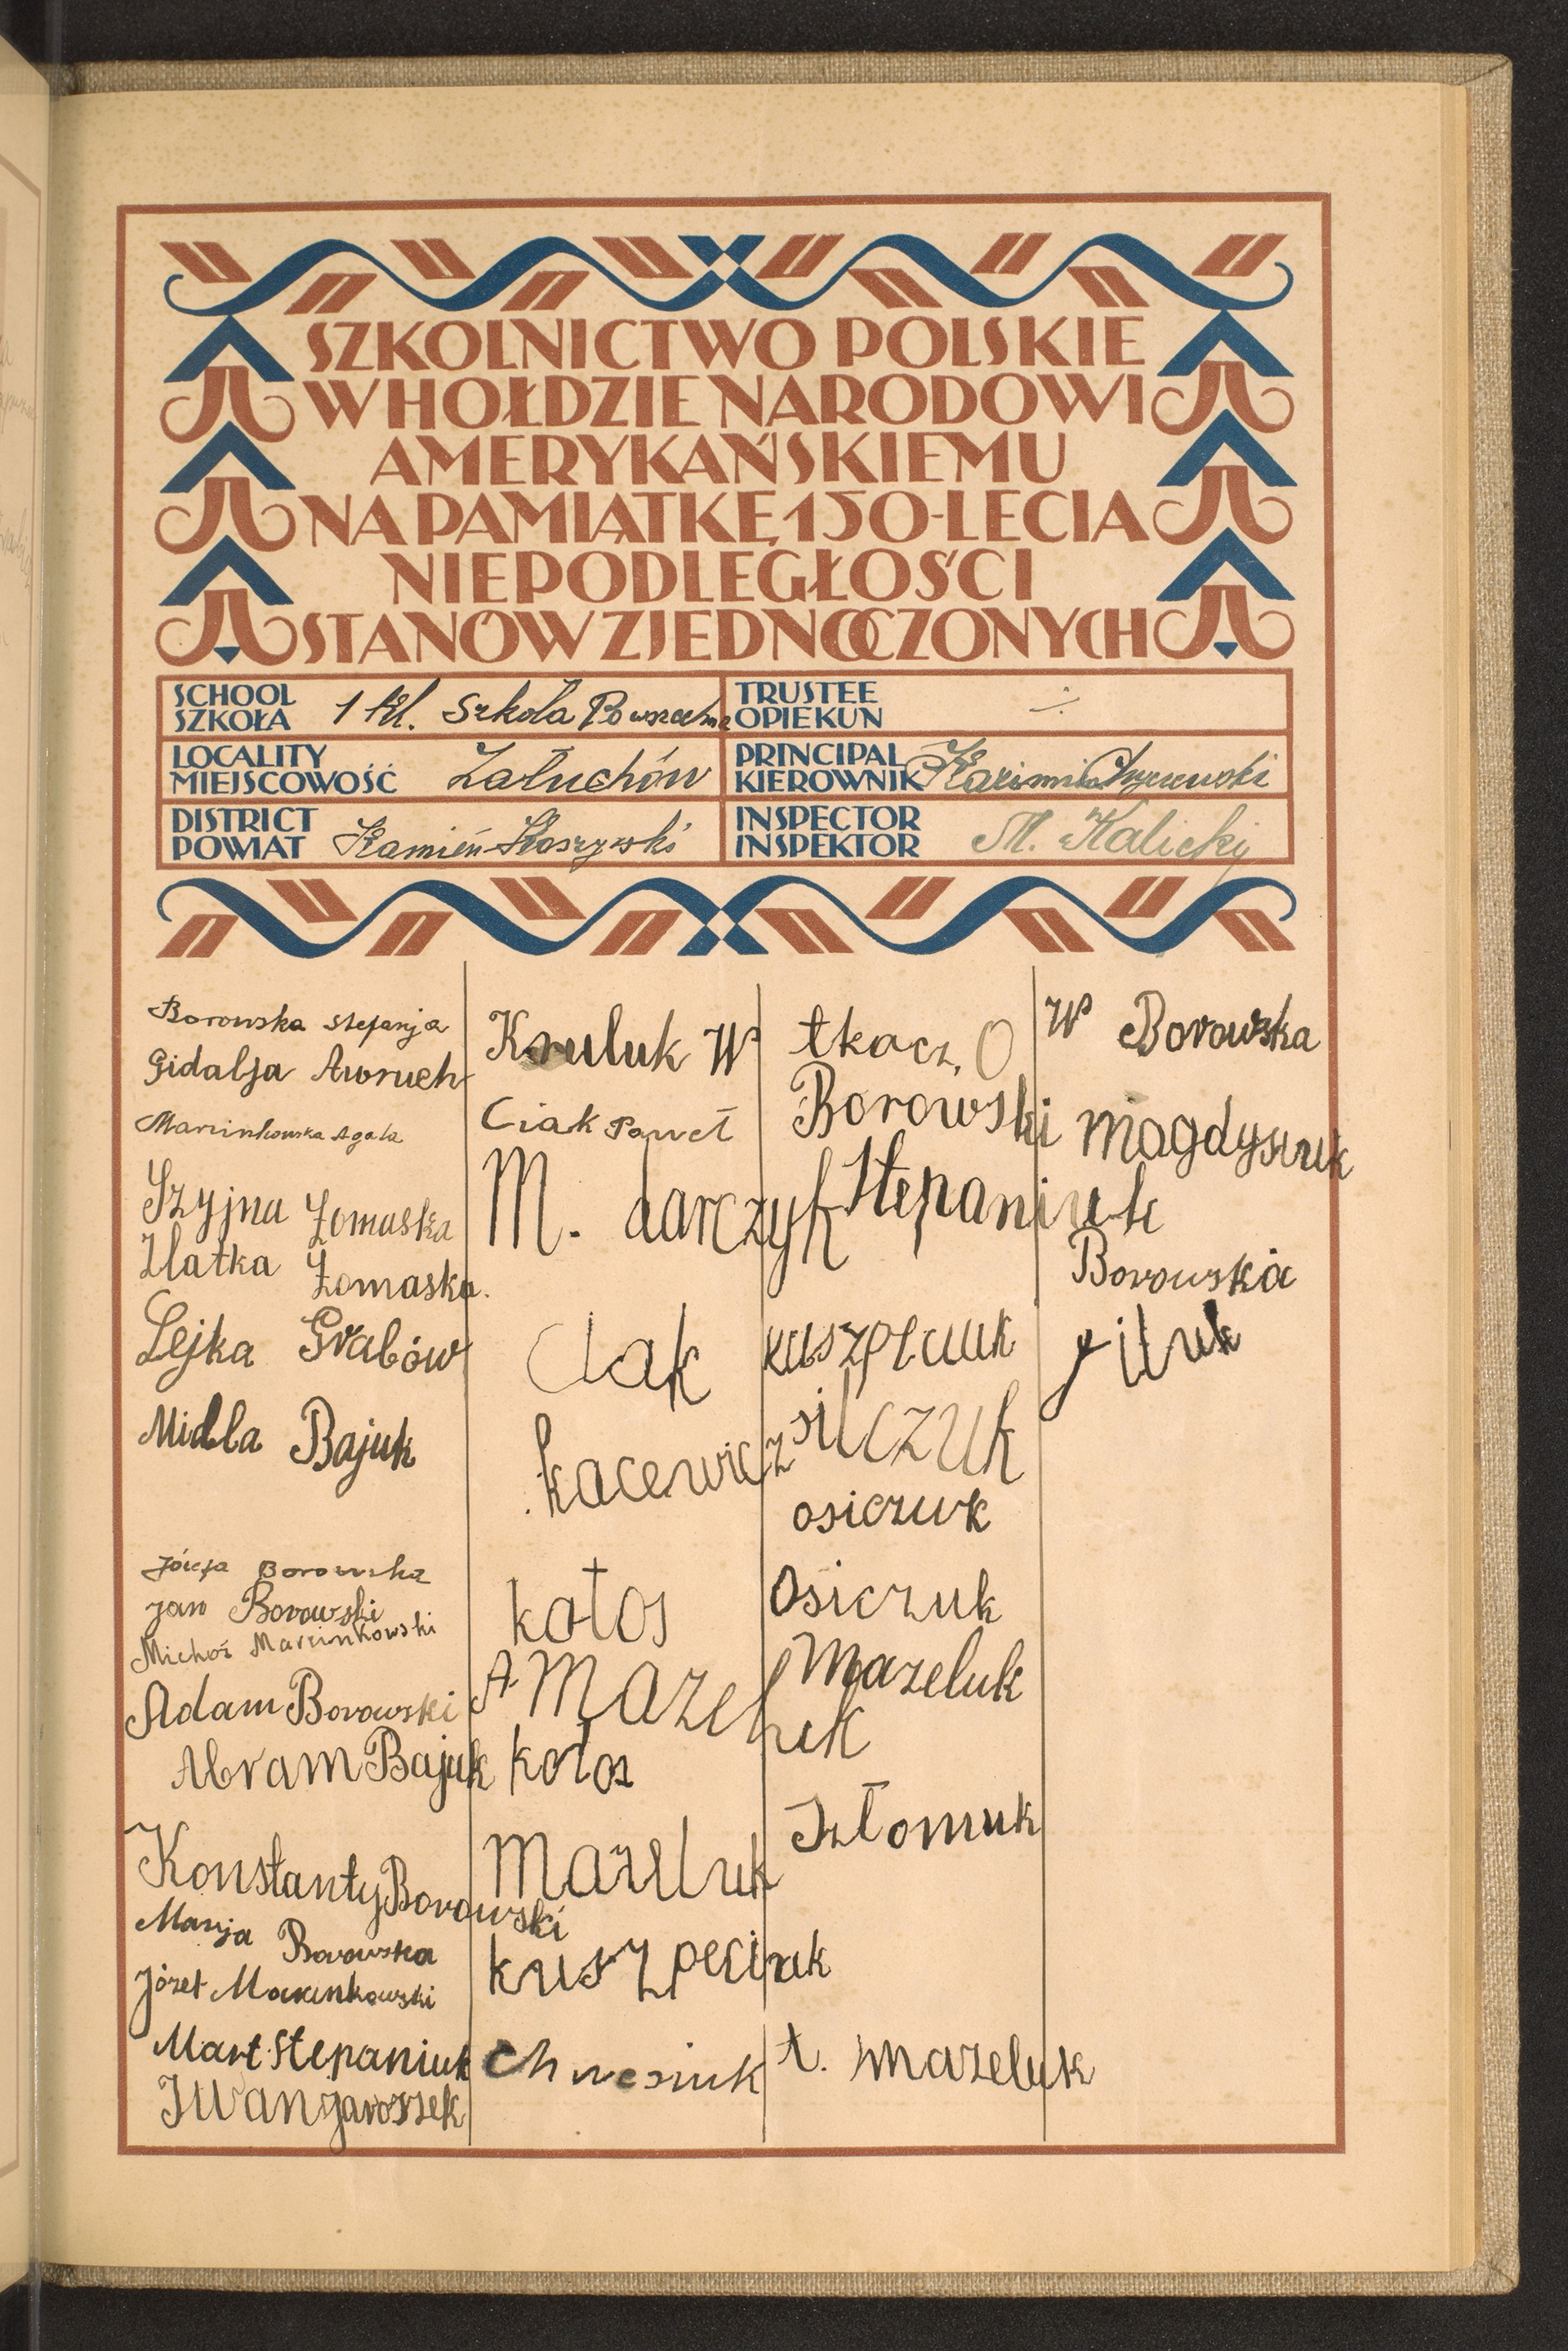 SZKOLNICTWO POLSKIE
W HOŁDZIE NARODOWI
AMERYKAŃSKIEMU
NA PAMIĄTKĘ 150-LECIA
NIEPODLEGŁOŚCI
STANÓW ZJEDNOCZONYCH
SCHOOL
SZKOŁA
1 kl. Szkoła Powszechna
TRUSTEE
OPIEKUN
LOCALITY
MIEJSCOWOŚĆ
Załuchów
PRINCIPAL
KIEROWNIK
DISTRICT
POWIAT
Kamień-Koszyrski
INSPECTOR
INSPEKTOR
M. Kalicki
Borowska Stefanja
Gidalja Awruch
Marcinkowska Agata
Szyjna Łomaska
Zlatka Łomaska.
Lejka Grabów
Midla Bajuk
Józefa Borowska
Jan Borowski
Michał Marcinkowski
Adam Borowski
Abram Bajuk
Konstanty Borowski
Marja Borowska
Józef Marcinkowski
Mart. Stepaniuk
Iwan Jaroszek
Kruluk W
Ciak Paweł
M. darczyk
Ciak
kacewicz
kołos
A Mazeluk
kołos
Mazeluk
kuszpeciuk
tkacz, O
Borowski
Stepaniuk
silczuk
osiczuk
Osiczuk
Mazeluk
t. mazeluk
W Borowska
magdysiuk
Borowska